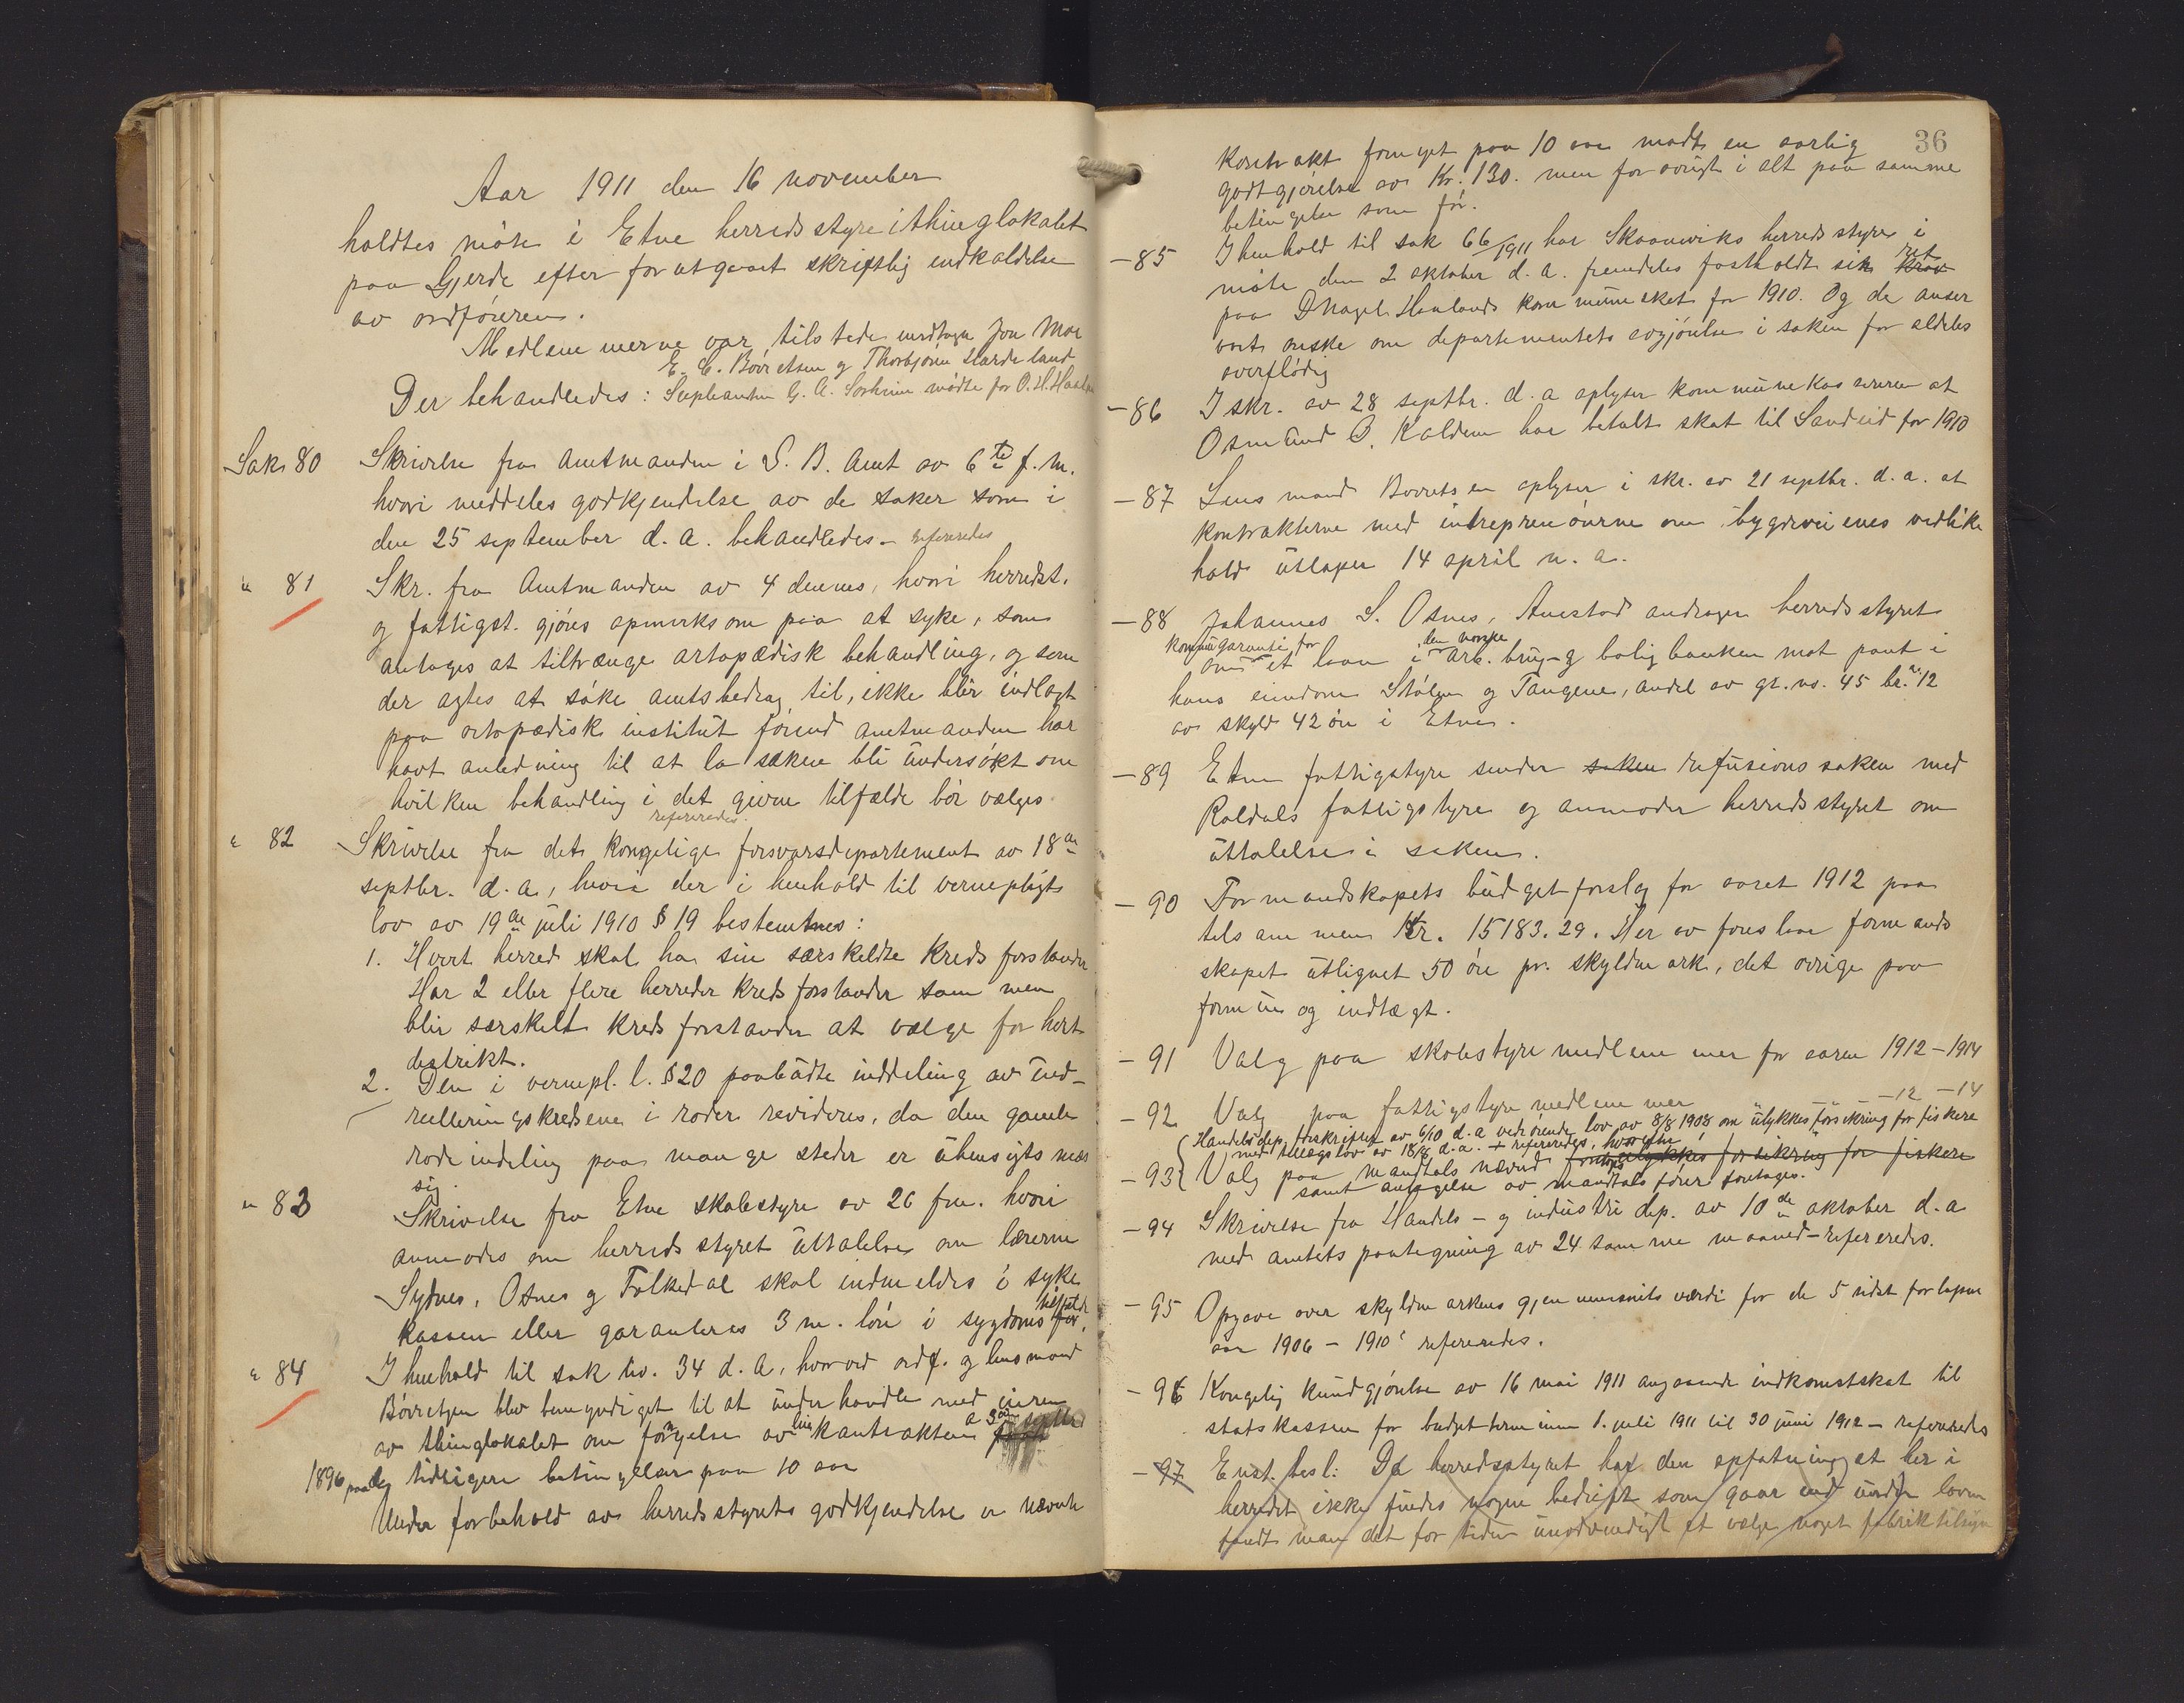 Aar 1911 den 16 november
holdtes møte i Etne herredsstyre i thinglokalet
paa Gjerde efter forutgaaet skriftlig indkaldelse
av ordføreren.
Medlemmerne var tilstede undtagen Jon Moe
E. C. Børretsen og Thorbjørn Harde land
Der behandledes: Supleanten G. A. Sørheim mødte for O. H. Haaland
Sak 80 Skrivelse fra Amtmanden i S. B. Amt av 6te f. m.
hvori meddeles godkjendelse av de saker som i
den 25 september d. a. behandledes - refereredes
" 81 Skr. fra Amtmanden av 4 dennes, hvori herredst.
og fattigst. gjøres opmerksom paa at syke, som
antages at tiltrænge ortopædisk behandling, og som
der agtes at søke amtsbedrag til, ikke blir indlagt
paa ortopædisk institut førend amtmanden har
havt anledning til at la saken bli undersøkt om
hvilken behandling i det givne tilfælde bør vælges
refereredes.
" 82 Skrivelse fra det kongelige forsvarsdepartement av 18de
septbr. d. a., hvori der i henhold til vernepligts
lov av 19de juli 1910 § 19 bestemmes:
1. Hvert herred skal ha sin særskildte kredsforstander
Har 2 eller flere herreder kredsforstander sammen
blir særskilt kredsforstander at vælge for hert
destrikt.
2. Den i vernepl. l. § 20 paabudte inddeling av ud-
rulleringskredsene i roder revideres, da den gamle
rodeindeling paa mange steder er uhensigtsmæs
sig.
" 83 Skrivelse fra Etne skolestyre av 26 f.m. hvori
anmodes om herredsstyret uttalelse om lærerne
Sydnes, Osnes og Folkedal skal indmeldes i syke
kassen eller garanteres 3 m. løn i sygdomstilfælde
" 84 I henhold til sak no. 34 d. a., hvorved ordf. og lensmand
Børretsen blev bemyndiget til at underhandle med eieren
av thinglokalet om fornyelse av leiekontrakten a 30te septbr
1896 paa de tidligere betingelser paa 10 aar
Under forbehold av herredsstyrets godkjendelse er nævnte
36
Kontrakt fornyet paa 10 aar modt en aarlig
godtgjørelse av Kr. 130. men for øvrigt i alt paa samme
betingelser som før.
- 85 I henhold til sak 66/1911 har Skaanviks herredsstyre i
møte den 2 oktober d. a. fremdeles fastholdt sin krav ret
paa D Nagel Haalands kommuneskat for 1910. Og de anser
vort ønske om departementets avgjørelse i saken for aldeles
overflødig
- 86 I skr. av 28 septbr. d. a oplyser kommunekasereren at
Osmund O. Kaldem har betalt skat til Sandeid for 1910
- 87 Lensmand Børretsen oplyser i skr. av 21 septbr. d. a. at
kontrakterne med intreprenøurne om bygdeveienes vedlike
hold utløper 14 april n. a.
- 88 Johannes S. Osnes, Austad andrager herredsstyret
om kommugaranti for et laan i den norske arb. brug- og boligbanken mot pant i
hans eiendom Stølen og Tangene, andel av gr. no. 45 br. n. 12
av skyld 42 øre i Etne.
- 89 Etne fattigstyre sender saken refusionssaken med
Røldals fattigstyre og anmoder herredsstyret om
uttalelse i saken.
- 90 Formandskapets budgetforslag for aaret 1912 paa
tilsammen Kr. 15183.29. Her av foreslaar formands
skapet utlignet 50 øre pr. skyldmark, det øvrige paa
formue og indtægt.
- 91 Valg paa skolestyremedlemmer for aarene 1912 - 1914
- 92 Valg paa fattigstyremedlemmer " - " - 12 - 14
Handelsdep. forskrifter av 6/10 d. a vedrørende lov av 8/8 1908 om ulykkesforsikring for fiskere
med tillægslov av 18/8 d. a. + refereredes, hvorefter
- 93 Valg paa mandtalsnævnd for ulykkesforsikring for fiskere
samt antagelse av mandtalsfører foretages.
- 94 Skrivelse fra Handels- og industridep. av 10de oktober d. a
med amtets paategning av 24 samme maaned - refereredes.
- 95 Opgave over skyldmarkens gjennemsnits værdi for de 5 sidst forløpne
aar 1906 - 1910 refereredes.
- 96 Kongelig kundgjørelse av 16 mai 1911 angaaende indkomstskat til
statskassen for budgetterminen 1. juli 1911 til 30 juni 1912 - refereredes
- 97 Enst. besl: Da herredsstyret har den opfatning at her i
herredet ikke findes nogen bedrift som gaar ind under loven
fandt man det for tiden unødvendigt at vælge noget fabriktilsyn